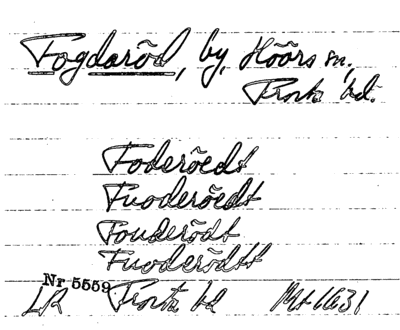 Fogdaröd, by, Höörs sn,
Frosta hd.
Foderöedt
Fuoderöedt
Fouderödt
Fuoderödtt
Nr 5559
LR Frosta hd Mt 1631